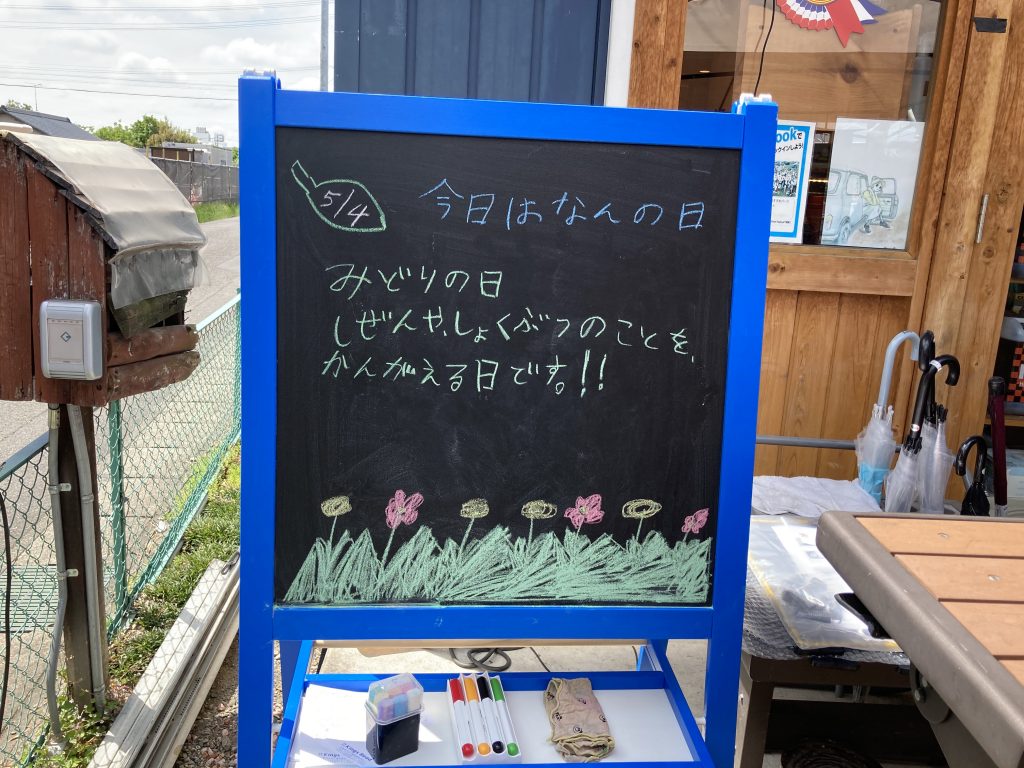 5/4
今日はなんの日
みどりの日
しぜんや、しょくぶつのことを、
かんがえる日です。!!
ookで
ックインしよう!